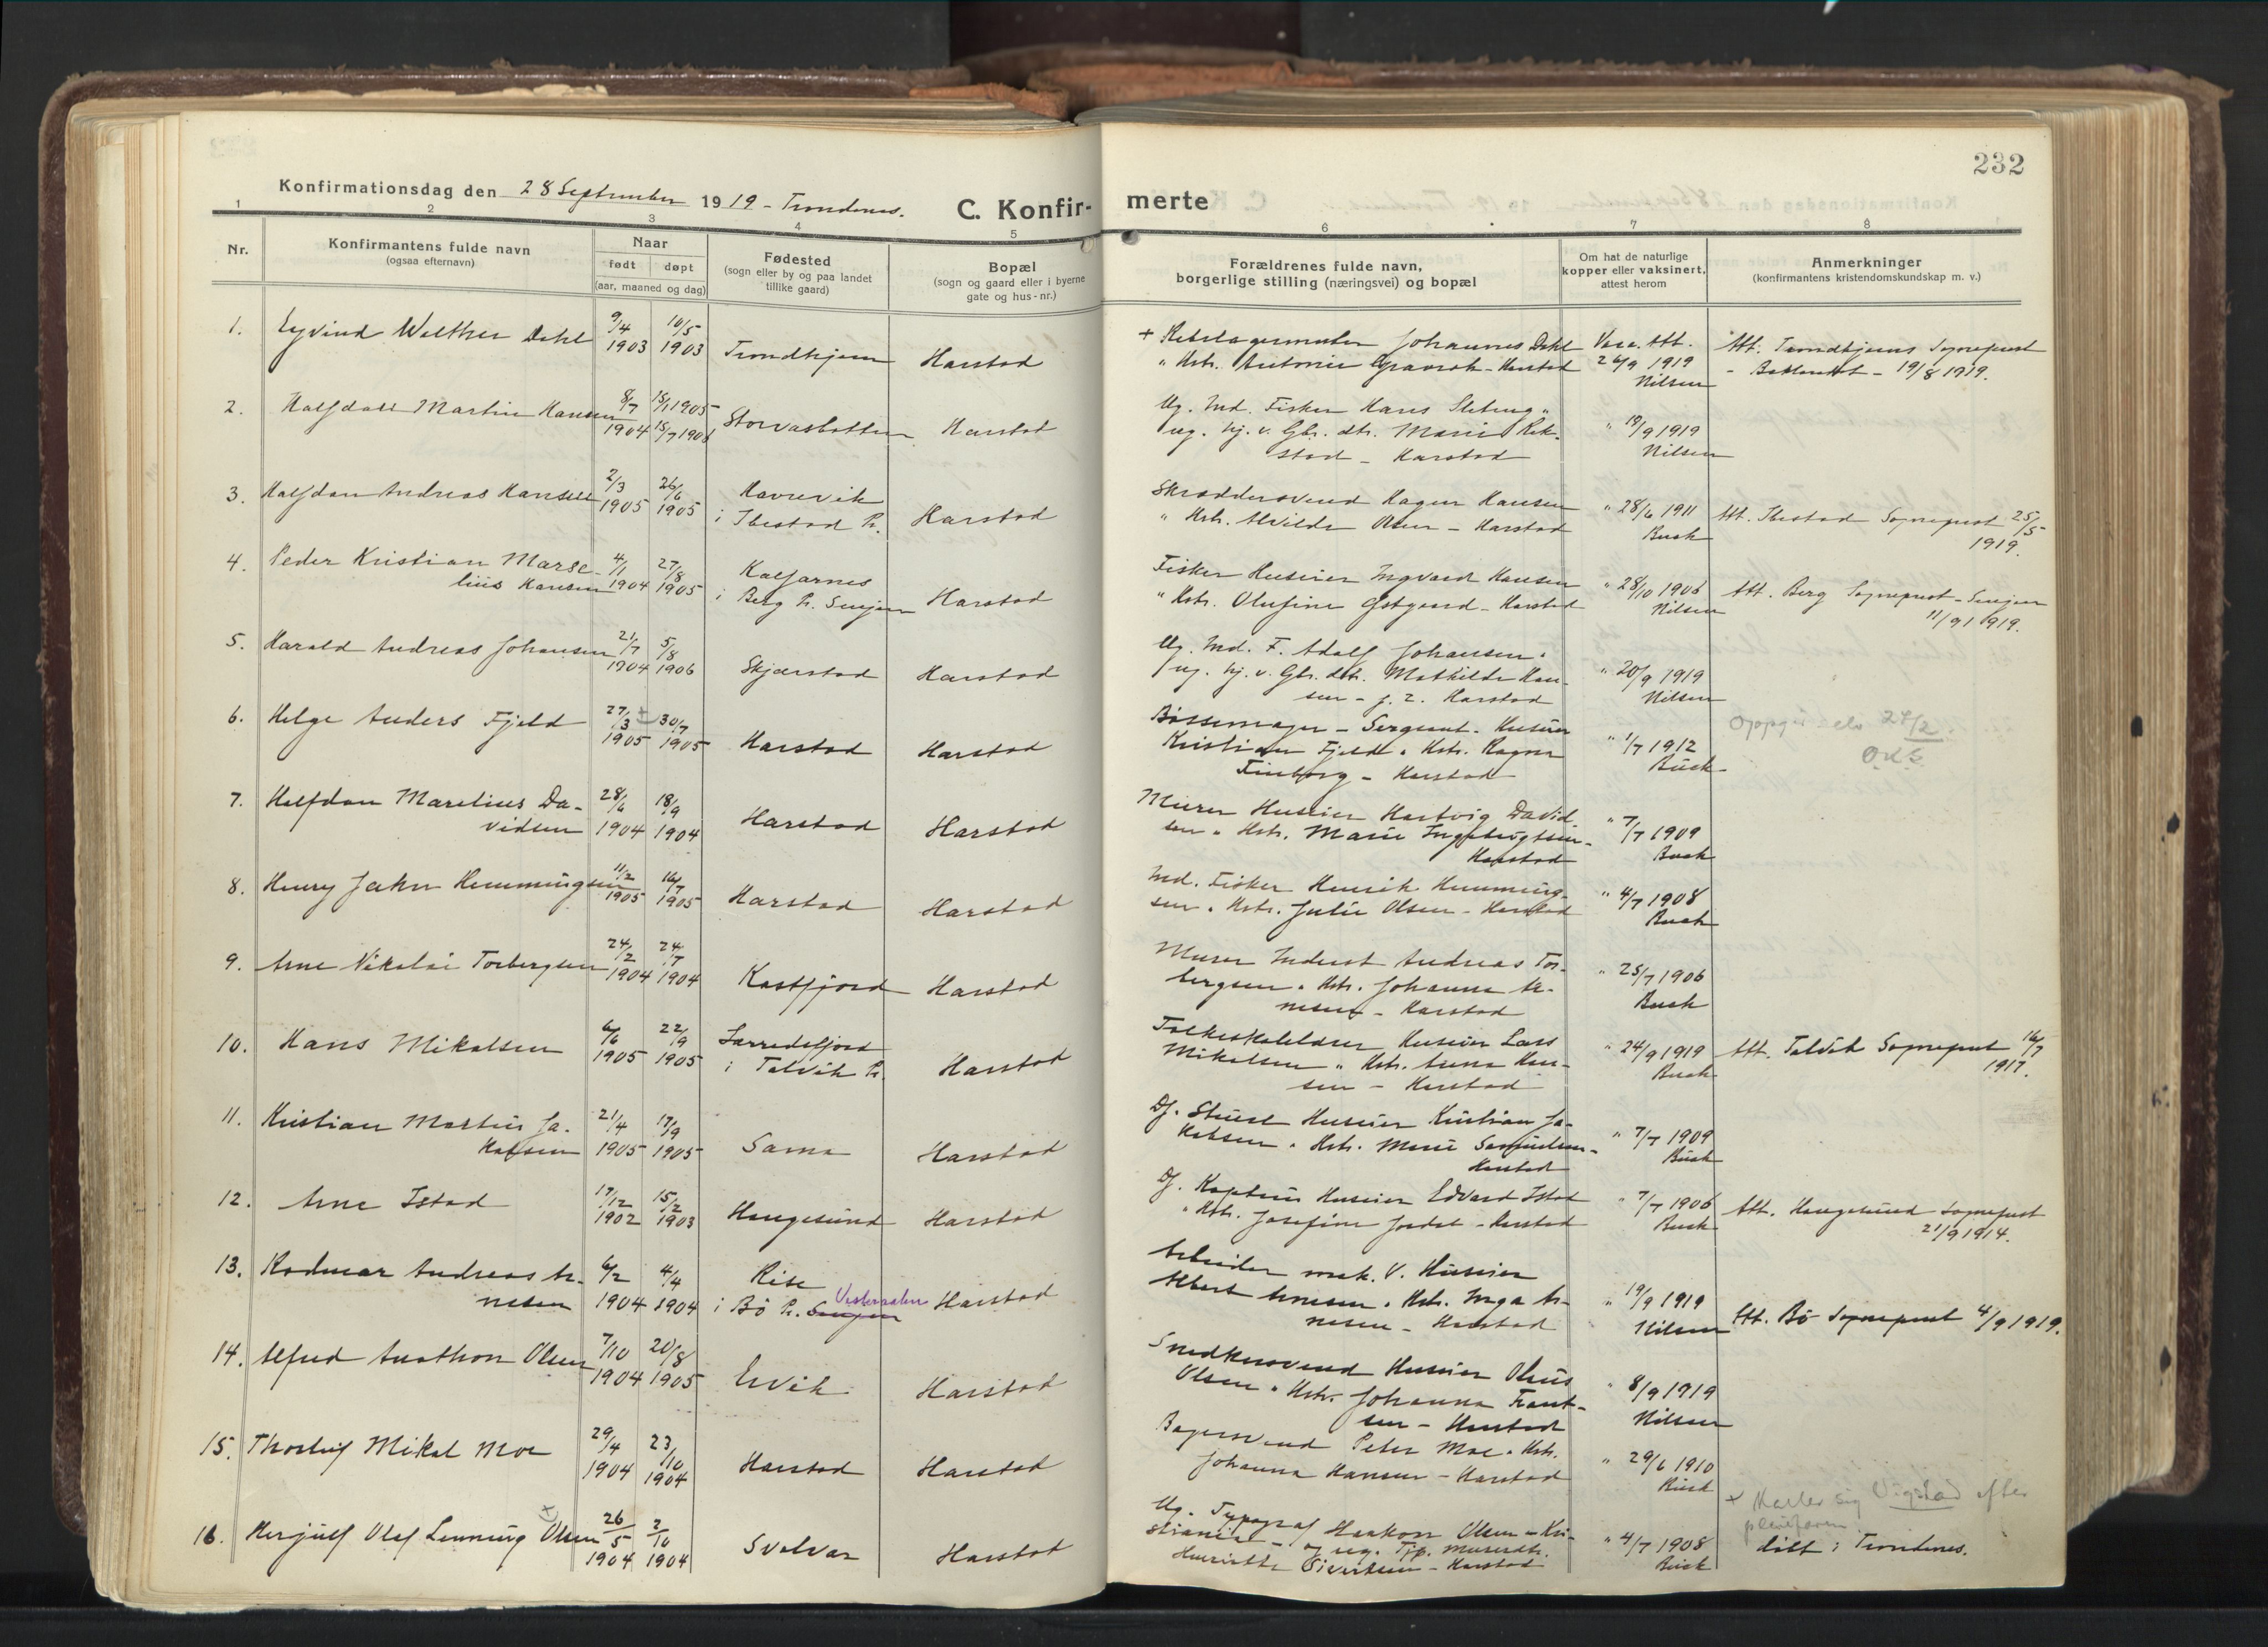 232
Konfirmationsdag den 28 September 1919 - Trondenes.
C. Konfir-
merte
1 2 3 4 5 6 7 8
Nr.
Konfirmantens fulde navn
(ogsaa efternavn)
Naar
født døpt
(aar, maaned og dag)
Fødested
(sogn eller by og paa landet
tillike gaard)
Bopæl
(sogn og gaard eller i byerne
gate og hus-nr.)
Forældrenes fulde navn,
borgerlige stilling (næringsvei) og bopæl
Om hat de naturlige
kopper eller vaksinert,
attest herom
Anmerkninger
(konfirmantens kristendomskundskap m. v.)
1. Eyvind Walther Dahl 9/4 1903 10/5 1903 Trondhjem Harstad
Johannes Dahl
" Hstr. Antonie - Harstad
Vacc. Att.
26/9 1919
Nilsen
Att. Trondhjems Sogneprest
- Baklandet - 19/8 1919.
2. Halfdan Martin Hansen 8/7 1904 Harstad
Ug. Ind. Fisker Hans
ug. hj. v. Gbr. dtr. Marie Rek-
stad - Harstad
" 18/9 1919
Nilsen
3. Halfdan Andreas Hansen 2/3 1905 26/6 1905
Havnvik
i Ibestad P. Harstad
Skræddersvend Hagen Hansen
" Hstr. Alvilde Olsen - Harstad
" 28/6 1911
Buck
Att. Ibestad Sogneprest 25/5
1919.
4. Peder Kristian Marse-
lius Hansen 4/1 1904 27/8 1905
i Berg P. Senjen Harstad
Fisker Huseier Ingvard Hansen
" Hstr. Olufine - Harstad
" 28/10 1906
Nilsen
Att. Berg Sogneprest - Senjen
11/9 1919.
5. Harald Andreas Johansen 21/7 1904 5/8 1906 Skjærstad Harstad
Ug. Ind. F. Adolf Johansen.
ug. hj. v. Gbr. dtr. Mathilde Han-
sen - g. 2. Harstad
" 20/9 1919
Nilsen
6. Helge Anders Fjeld 27/3 1905 30/7 1905 Harstad Harstad
Bøssemager - Sergeant. Huseier
Kristian Fjeld. Hstr. Ragna
- Harstad
" 1/7 1912
Buck
24/2
7. Halfdan Marelius Da-
vidsen 28/6 1904 18/9 1904 Harstad Harstad
Murer Huseier Hartvig David-
sen " Hstr. Marie Ingebrigtsen -
Harstad
" 7/7 1909
Buck
8. Henry Jakon Hemmingsen 11/2 1905 16/7 1905 Harstad Harstad
Ind. Fisker Henrik Hemming-
sen. Hstr. Julie Olsen - Harstad
" 4/7 1908
Buck
9. Arne Nikolai Torbergsen 24/2 1904 24/7 1904 Kastfjord Harstad
Murer Inderst Andreas Tor-
bergsen. Hstr. Johanna Ar-
nesen - Harstad
" 25/7 1906
Buck
10. Hans Mikalsen 6/6 1905 22/9 1905
i Talvik P. Harstad
Folkeskolelærer Huseier Lars
Mikalsen " Hstr. Anna Han-
sen - Harstad
" 24/9 1919
Buck
Att. Talvik Sogneprest 16/7
1917.
11. Kristian Martin Ja-
kobsen 21/4 1905 17/9 1905 Sama Harstad
Df. Stuert Huseier Kristian Ja-
kobsen. Hstr. Marie Samuelsen -
Harstad
" 7/7 1909
Buck
12. Arne Istad 17/12 1902 15/2 1903 Haugesund Harstad
Df. Kaptein Huseier Edvard Istad
" Hstr. Josefine - Harstad
" 7/7 1906
Buck
Att. Haugesund Sogneprest
21/9 1914.
13. Rodmar Andreas Ar-
nesen 6/2 1904 4/4 1904
Rise
i Bø P. Senjen Vesteraalen Harstad
Arbeider mek. V. Huseier
Albert Arnesen. Hstr. Inga Ar-
nesen - Harstad
" 19/9 1919
Nilsen
Att. Bø Sogneprest 4/9 1919.
14. Alfred Anathon Olsen 7/10 1904 20/8 1905 Ervik Harstad
Snedkersvend Huseier Olaus
Olsen " Hstr. Johanna Frant-
sen - Harstad
" 8/9 1919
Nilsen
15. Thorleif Mikal Moe 29/4 1904 23/10 1904 Harstad Harstad
Bagersvend Peter Moe. Hstr.
Johanna Hansen - Harstad
" 29/6 1910
Buck
16. Herjulf Olaf Lenning Olsen 26/5 1904 2/10 1904 Svolvær Harstad
Ug. Typograf Haakon Olsen - Kri-
stiania - og ug.
Henriette Sivertsen - Harstad
" 4/7 1908
Buck
+ Kaller sig Vigstad efter
pleiefaren
døbt i Trondenes.